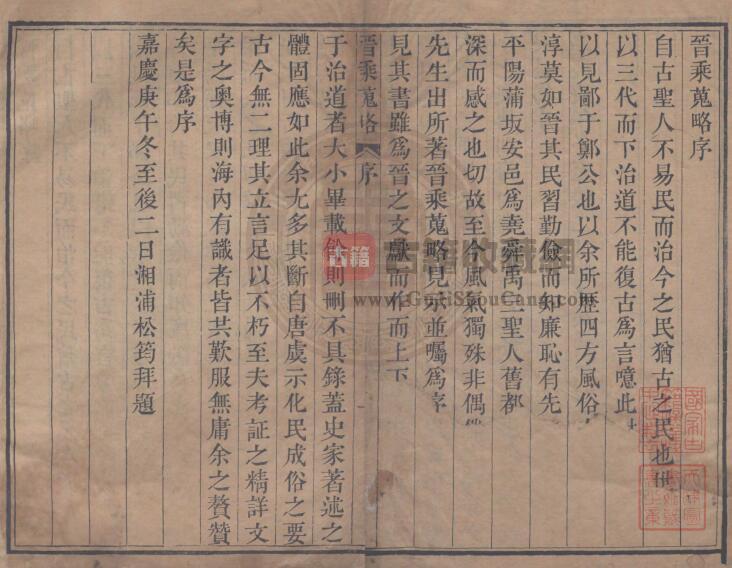 晉乘蒐略序
自古聖人不易民而治今之民猶古之民也
以三代而下治道不能復古為言噫此
以見鄙于鄭公也以余所歷四方風俗
淳莫如晉其民習勤儉而知廉恥有先
平陽蒲坂安邑為堯舜禹三聖人舊都
深而感之也切故至今風氣獨殊非偶
先生出所著晉乘蒐略見示並囑為序
見其書雖為晉之文獻而作而上下
晉乘蒐略 序
于治道者大小畢載餘則刪不具錄蓋史家著述之
體固應如此余尢多其斷自唐虞示化民成俗之要
古今無二理其立言足以不朽至夫考証之精詳文
字之奧博則海內有識者皆共歎服無庸余之贅贊
矣是為序
嘉慶庚午冬至後二日湘浦松筠拜題
古籍
古籍收藏網
www.GujiShouCang.com